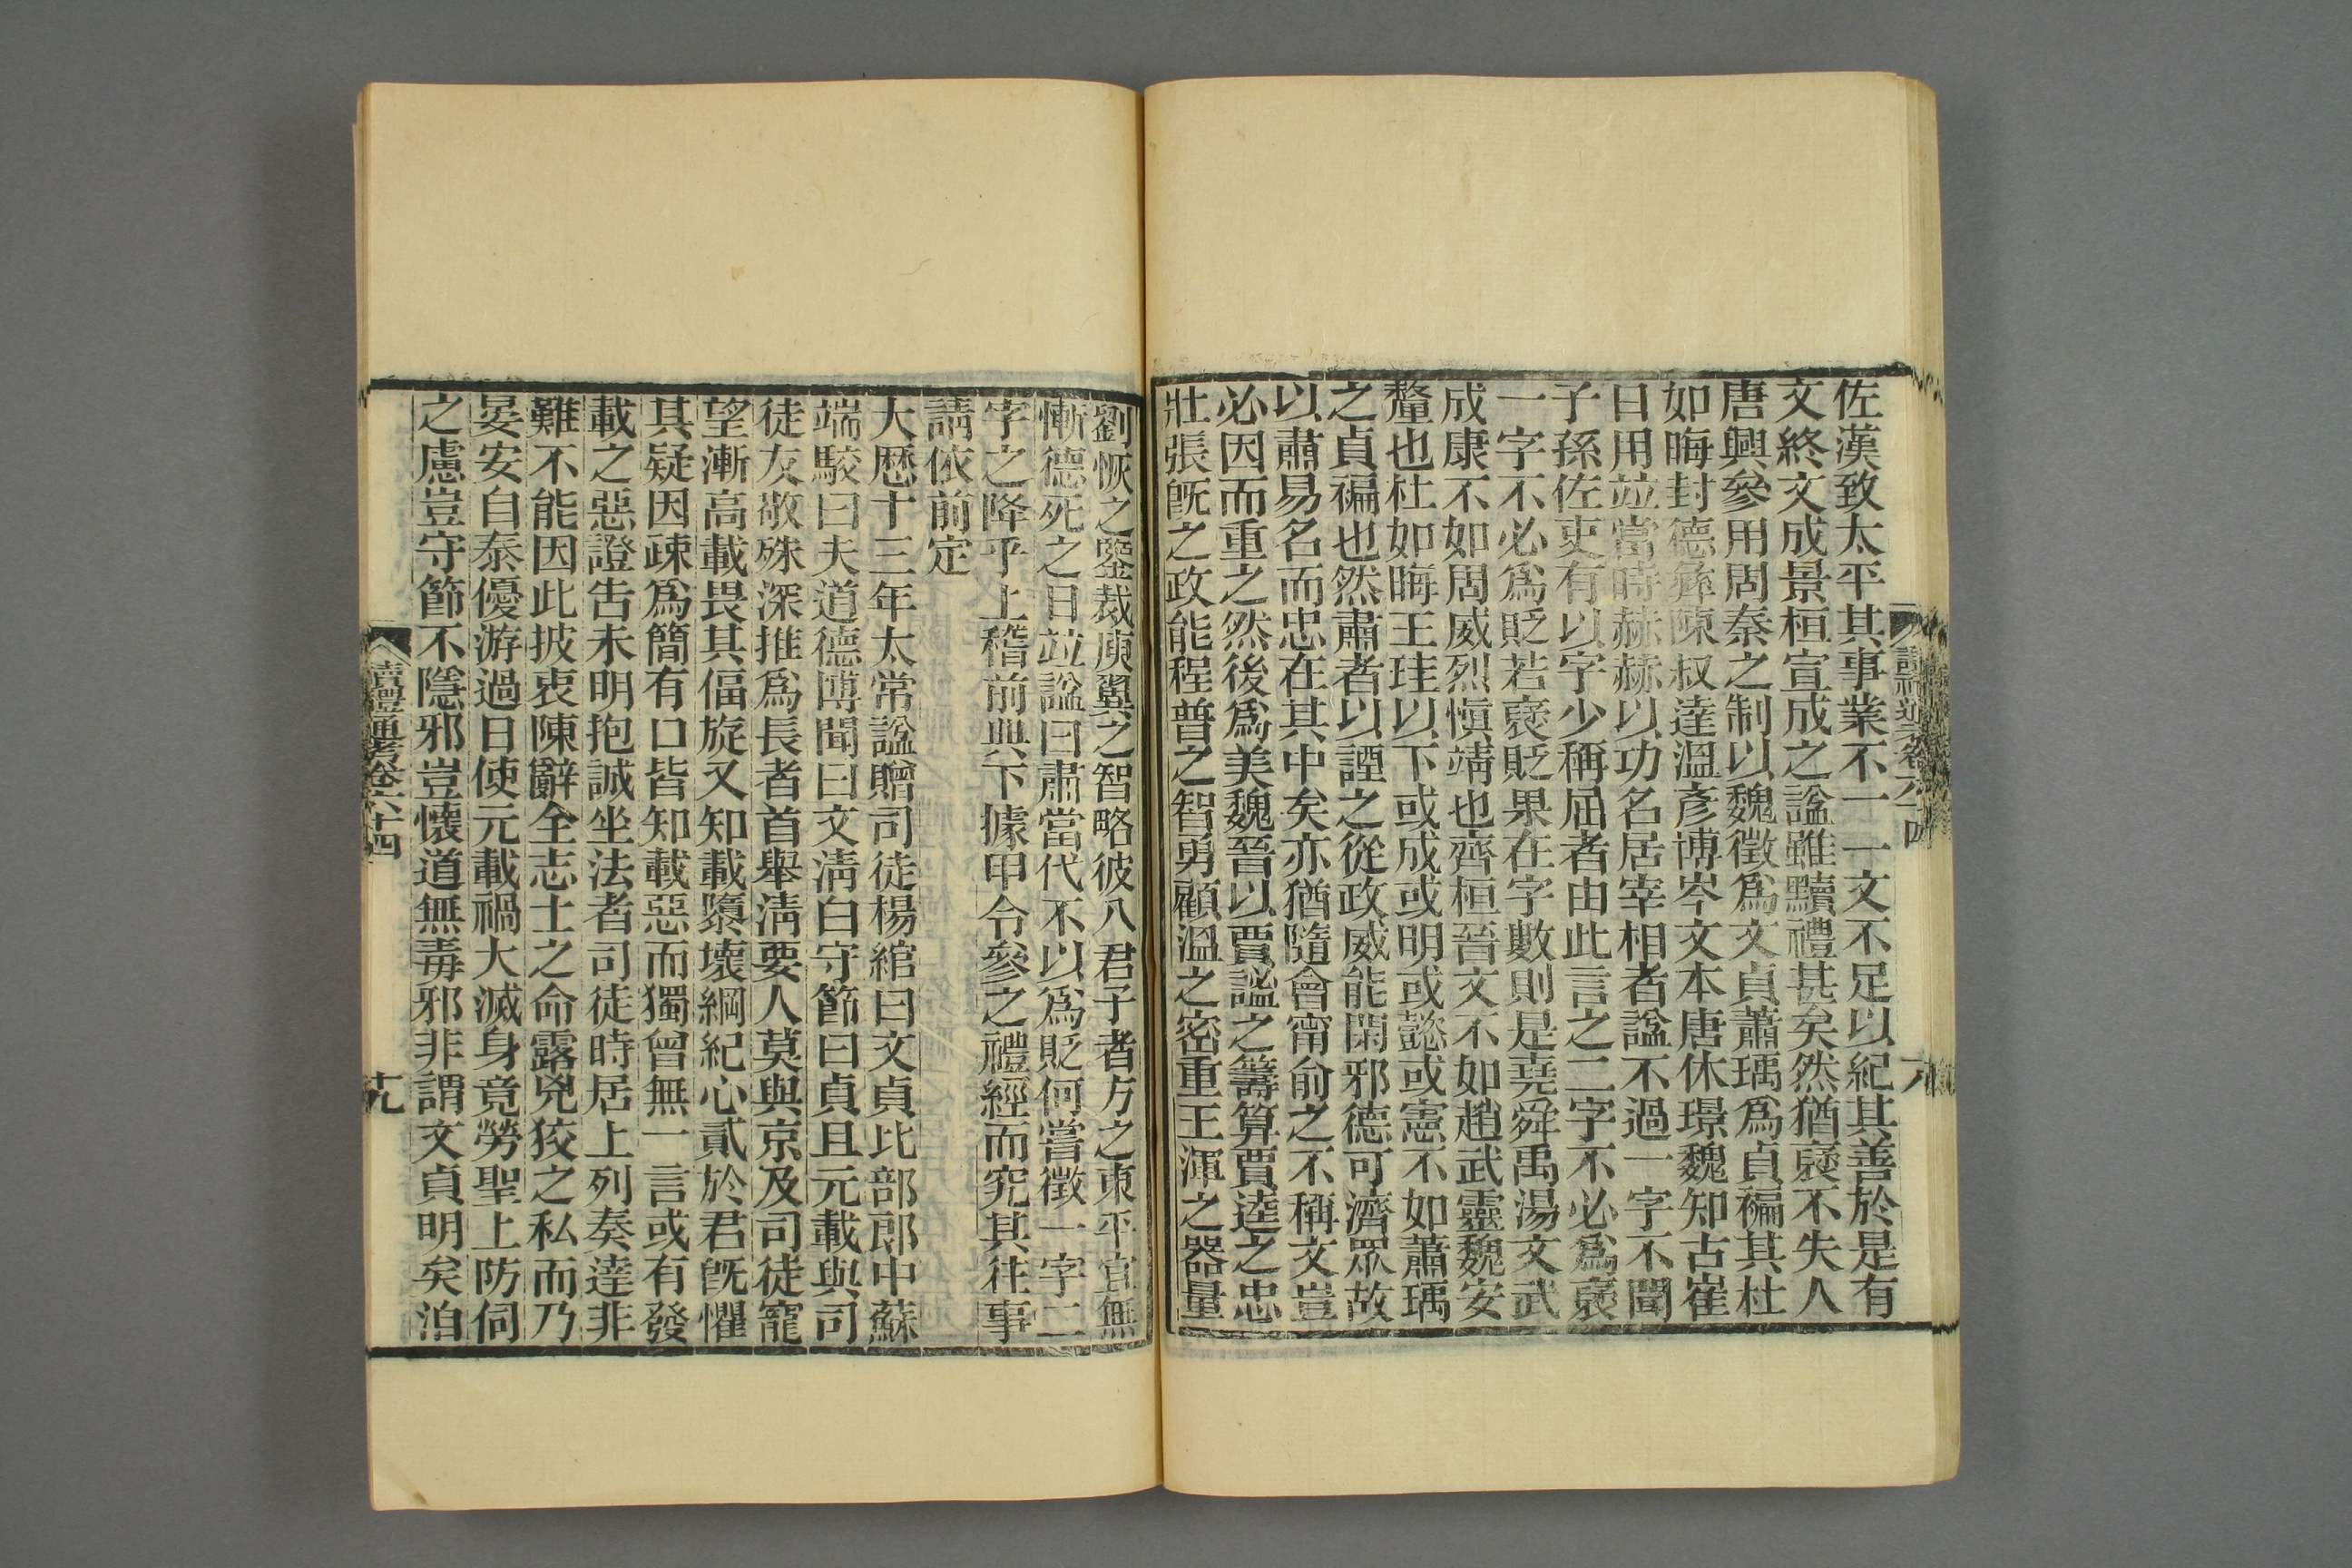 佐漢致太平其事業不一一文不足以紀其善於是有
文終文成景桓宣成之諡雖黷禮甚矣然猶褒不失人
唐興參用周秦之制以魏徵爲文貞蕭瑀爲貞褊其杜
如晦封德彝陳叔達溫彥博岑文本唐休璟魏知古崔
日用竝當時赫赫以功名居宰相者諡不過一字不聞
子孫佐吏有以字少稱屈者由此言之二字不必爲褒
一字不必爲貶若褒貶果在字數則是堯舜禹湯文武
成康不如周威烈愼靖也齊桓晉文不如趙武靈魏安
釐也杜如晦王珪以下或成或明或懿或憲不如蕭瑀
之貞褊也然肅者以諲之從政威能閑邪德可濟眾故
以肅易名而忠在其中矣亦猶隨會甯俞之不稱文豈
必因而重之然後爲美魏晉以賈謐之籌算賈逵之忠
壯張旣之政能程普之智勇顧溫之密重王渾之器量
劉恢之鑒裁庾翼之智略彼八君子者方之東平宜無
慚德死之日竝諡曰肅當代不以爲貶何嘗徵一字二
字之降乎上稽前典下據甲令參之禮經而究其往事
請依前定
大歷十三年太常諡贈司徒楊綰曰文貞比部郎中蘇
端駮曰夫道德博聞曰文淸白守節曰貞且元載與司
徒友敬殊深推爲長者首舉淸要人莫與京及司徒寵
望漸高載畏其偪旋又知載隳壞綱紀心貳於君旣懼
其疑因疎爲簡有口皆知載惡而獨曾無一言或有發
載之惡證告未明抱誠坐法者司徒時居上列奏達非
難不能因此披衷陳辭全志士之命露兇狡之私而乃
晏安自泰優游過日使元載禍大滅身竟勞聖上防伺
之慮豈守節不隱邪豈懷道無毒邪非謂文貞明矣洎
讀禮通考卷六十四
十九